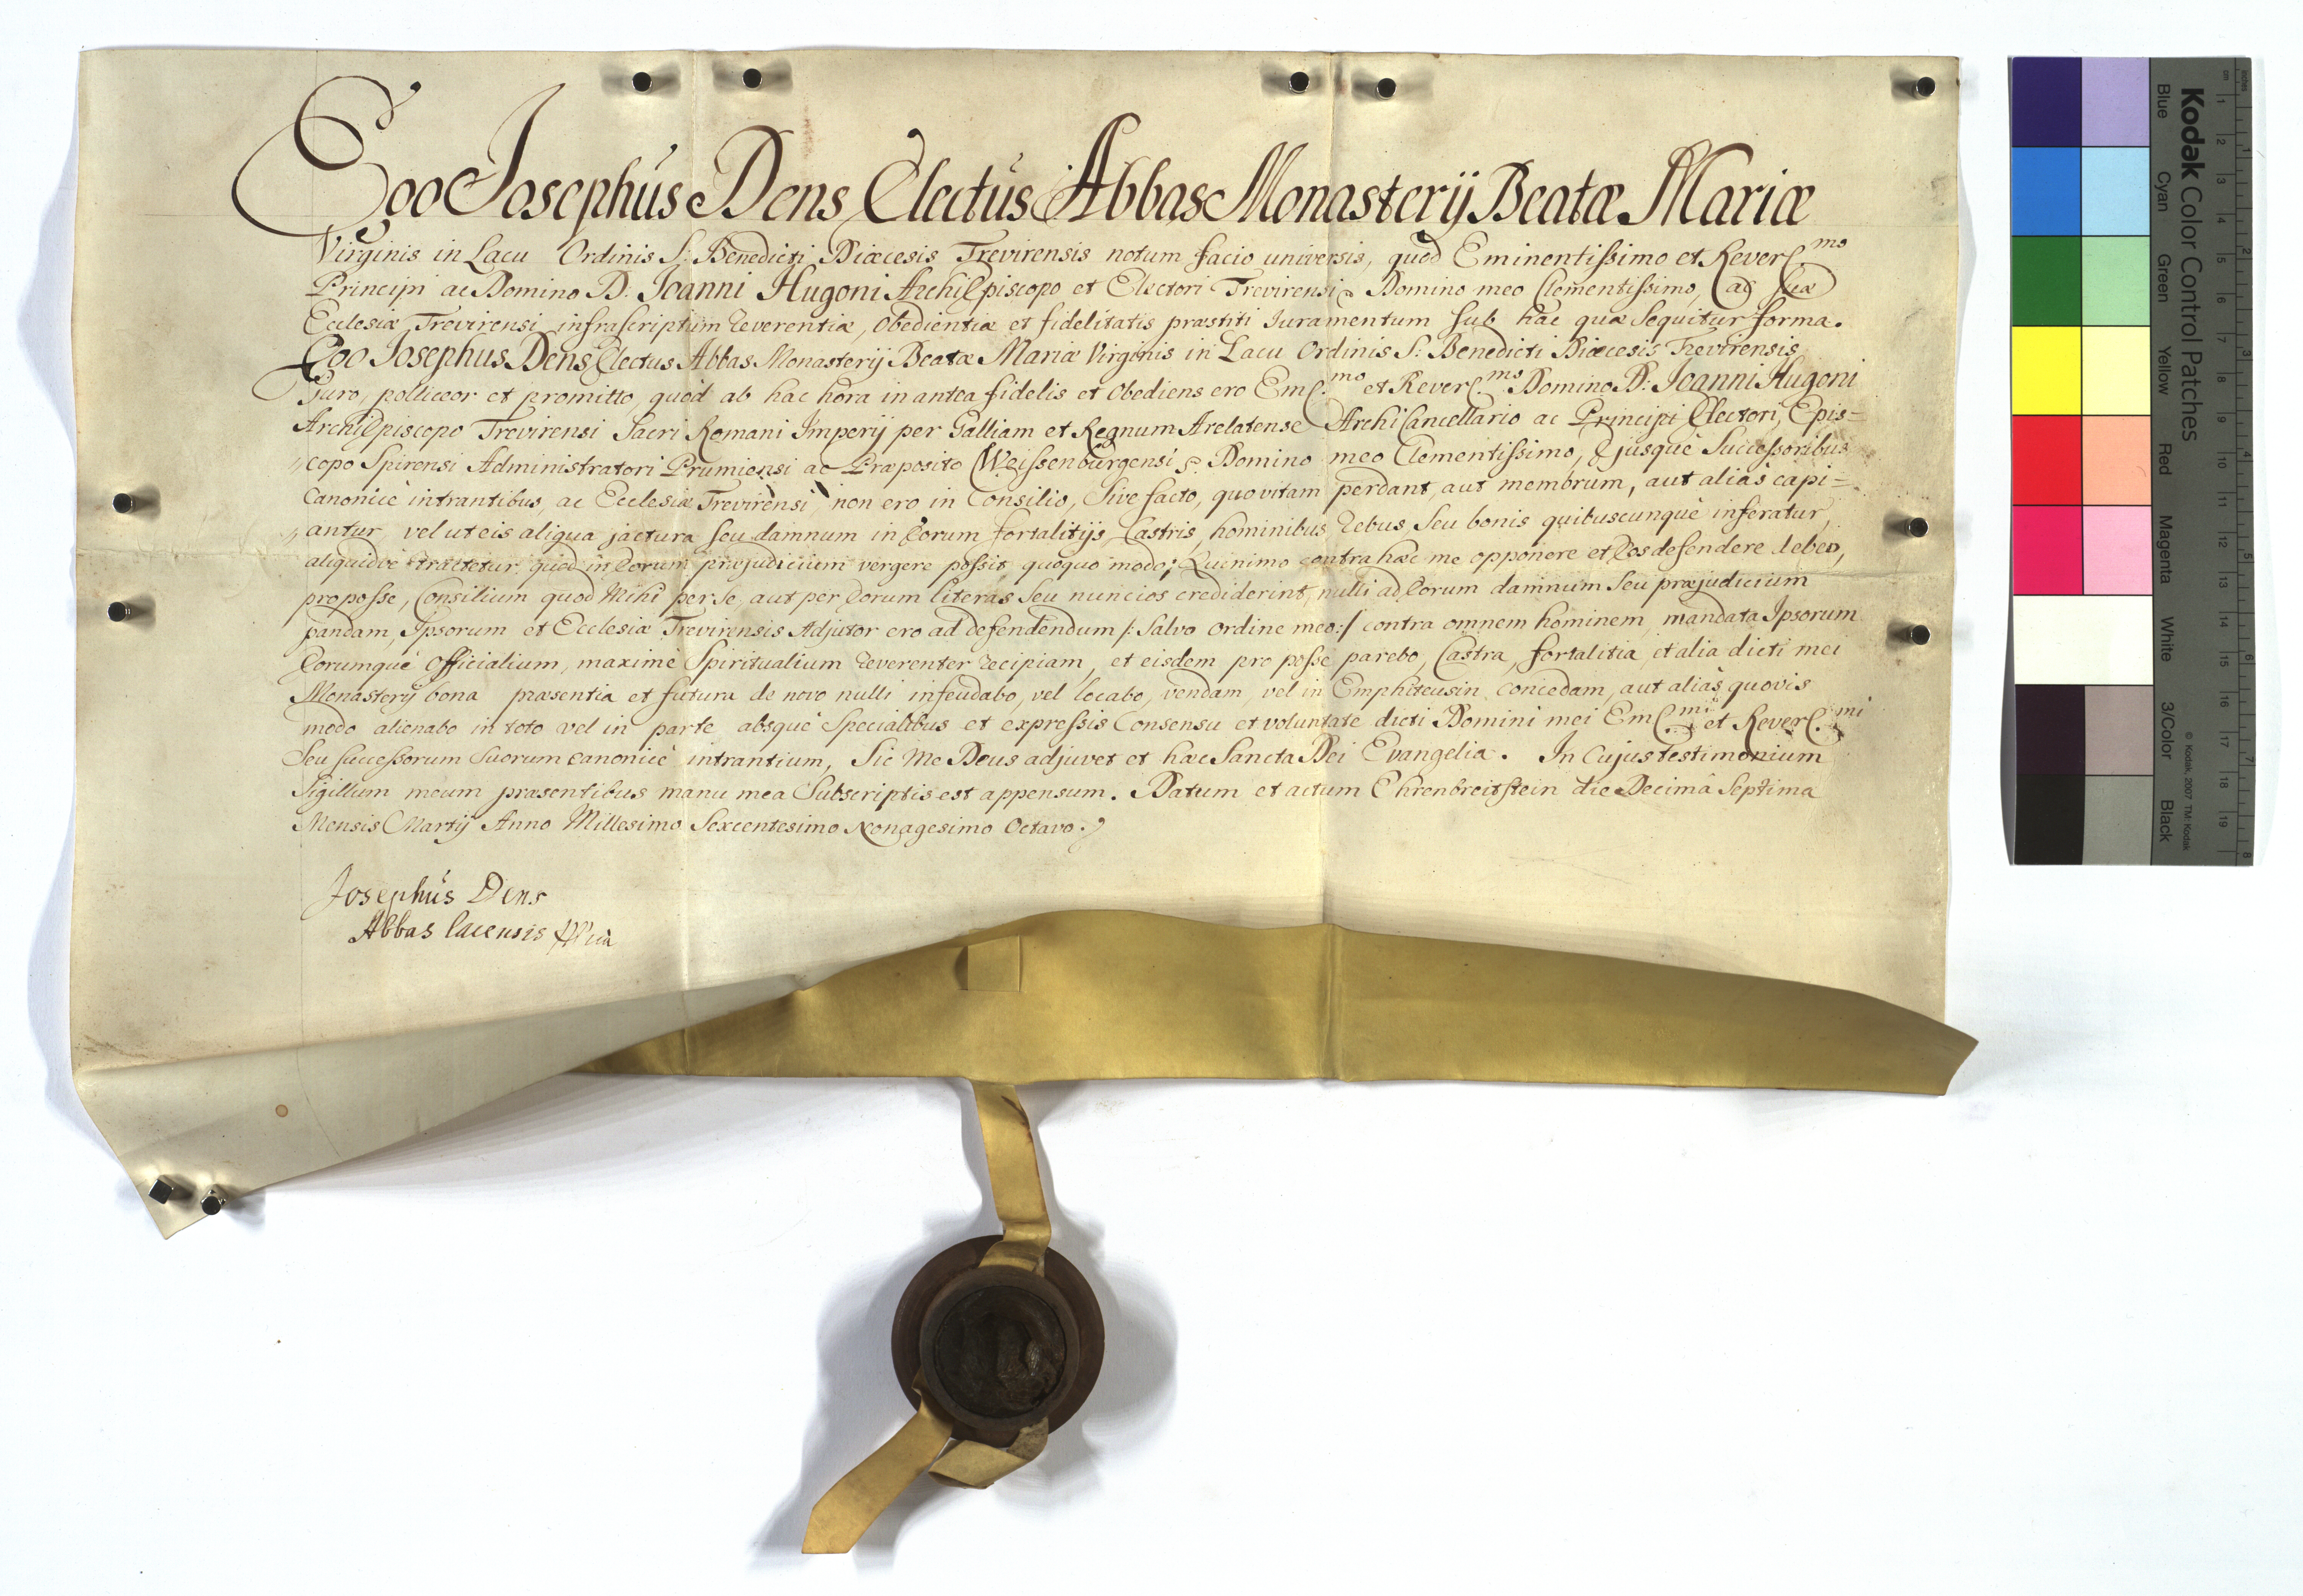 Ego Josephus Dens Electus Abbas Monasterij Beatæ Mariæ
Virginis in Lacu Ordinis S: Benedicti Diœcesis Trevirensis notum facio universis, quod Eminentissimo et Reverς.mo
Principi ac Domino D: Joanni Hugoni ArchiEpiscopo et Electori Trevirensi Domino meo Clementissimo, ac suæ
Ecclesiæ Trevirensi infrascriptum reverentiæ, obedientiæ et fidelitatis præstiti Juramentum sub hac quæ sequitur forma.
Ego Josephus Dens Electus Abbas Monasterij Beatæ Mariæ Virginis in Lacu Ordinis S: Benedicti Diœcesis Trevirensis
Juro, polliceor et promitto, quòd ab hac hora in antea fidelis et obediens ero Emς.mo et Reverς.mo Domino D: Joanni Hugoni
ArchiEpiscopo Trevirensi Sacri Romani Imperij per Galliam et Regnum Arelatense ArchiCancellario ac Principi Electori, Epis=
copo Spirensi Administratori Prumiensi ac Præposito Weissenburgensi Domino meo Clementissimo, Ejusquè Successoribus
Canonicè intrantibus, ac Ecclesiæ Trevirensi non ero in Consilio, sive facto, quo vitam perdant, aut membrum, aut aliàs capi=
antur, vel ut eis aliqua jactura seu damnum in Eorum fortalitijs, Castris, hominibus rebus seu bonis quibuscunquè inferatur,
aliquidvè tractetur, quod in Eorum præjudicium vergere possit quoquo modo; Quinimo contra hæc me opponere et Eos defendere debeo,
pro posse, Consilium quod Mihi per se, aut per Eorum literas seu nuncios crediderint, nulli ad Eorum damnum seu præjudicium
pandam, Ipsorum et Ecclesiæ Trevirensis Adjutor ero ad defendendum /: salvo ordine meo :/ contra omnem hominem, mandata Ipsorum
Eorumquè Officialium, maximè Spiritualium reverenter recipiam, et eisdem pro posse parebo, Castra, fortalitia, et alia dicti mei
Monasterij bona præsentia et futura de novo nulli infeudabo, vel locabo, vendam, vel in Emphiteusin concedam, aut aliàs quovis
modo alienabo in toto vel in parte absquè Specialibus et expressis Consensu et voluntate dicti Domini mei Emς.mi et Reverς.mi
Seu successorum suorum canonicè intrantium, Sic Me Deus adjuvet et hæc Sancta Dei Evangelia. In Cujus testimonium
Sigillum meum præsentibus manu mea Subscriptis est appensum. Datum et actum Ehrenbreitstein die Decimâ Septima
Mensis Martij Anno Millesimo Sexcentesimo Nonagesimo Octavo.
Josephus Dens
Abbas lacensis
Kodak Color Control Patches
Blue Cyan Green Yellow Red Magenta White 3/Color Black
© Kodak, 2007 TM: Kodak
cm 1 2 3 4 5 6 7 8 9 10 11 12 13 14 15 16 17 18 19
inches 1 2 3 4 5 6 7 8